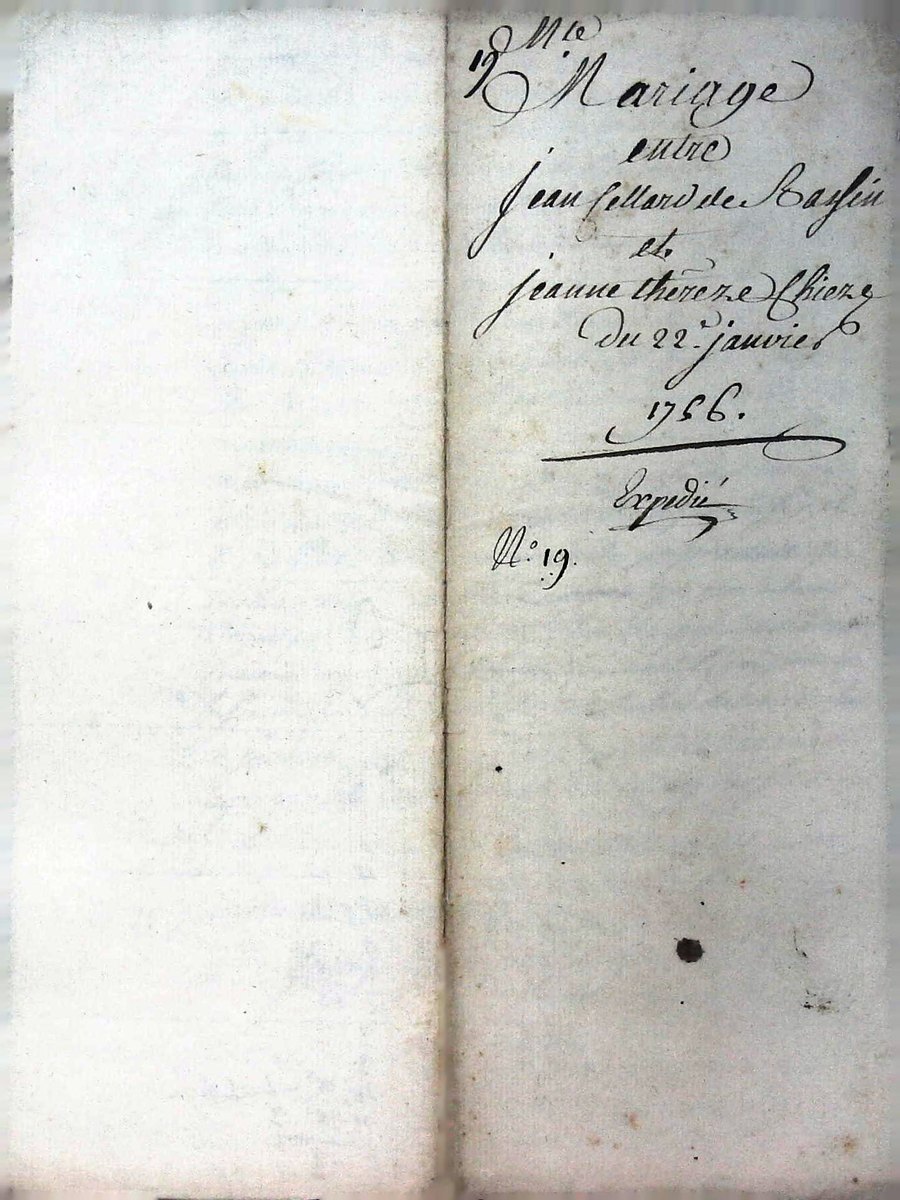 19 Mte
Mariage
entre
Jean Cellard de
et
jeanne thereze Chieze
du 22e. janvier
1756.
Expedié
No. 19.